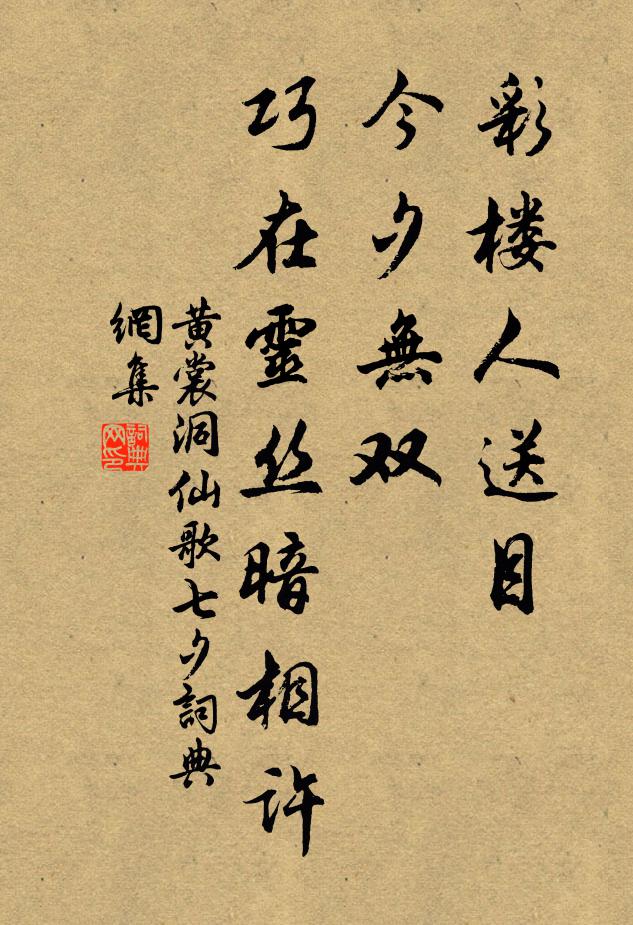 彩楼人送目
今夕無双
巧在靈丝暗相许
黄裳洞仙歌七夕詞典
網集
詞典网印